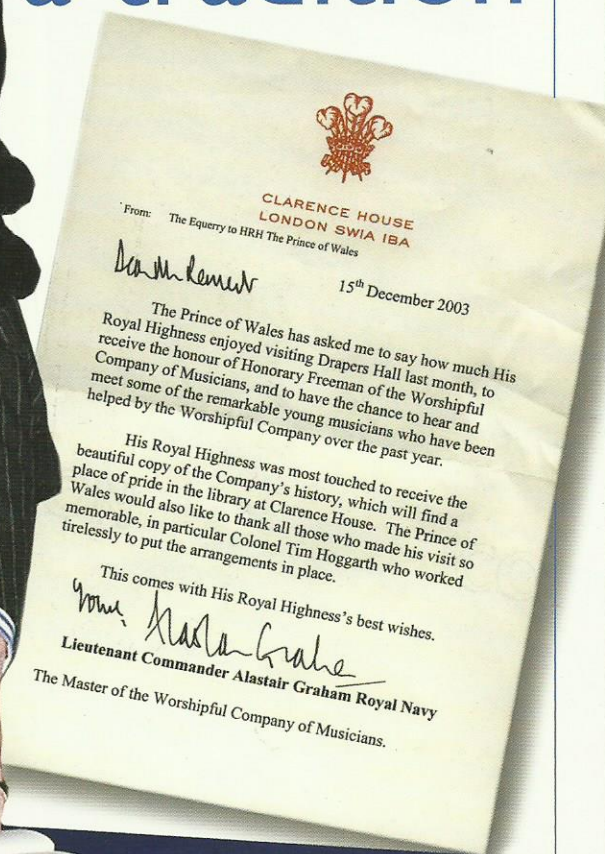 a tradition
CLARENCE HOUSE
LONDON SW1A 1BA
From: The Equerry to HRH The Prince of Wales
15th December 2003
The Prince of Wales has asked me to say how much His
Royal Highness enjoyed visiting Drapers Hall last month, to
receive the honour of Honorary Freeman of the Worshipful
Company of Musicians, and to have the chance to hear and
meet some of the remarkable young musicians who have been
helped by the Worshipful Company over the past year.
His Royal Highness was most touched to receive the
beautiful copy of the Company's history, which will find a
place of pride in the library at Clarence House. The Prince of
Wales would also like to thank all those who made his visit so
memorable, in particular Colonel Tim Hoggarth who worked
tirelessly to put the arrangements in place.
This comes with His Royal Highness's best wishes.
Alastair Graham
Lieutenant Commander Alastair Graham Royal Navy
The Master of the Worshipful Company of Musicians.